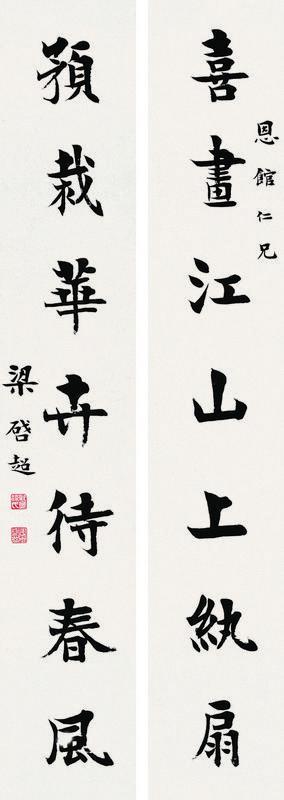 恩館仁兄
喜畫江山上紈扇
預栽華卉待春風
梁啓超